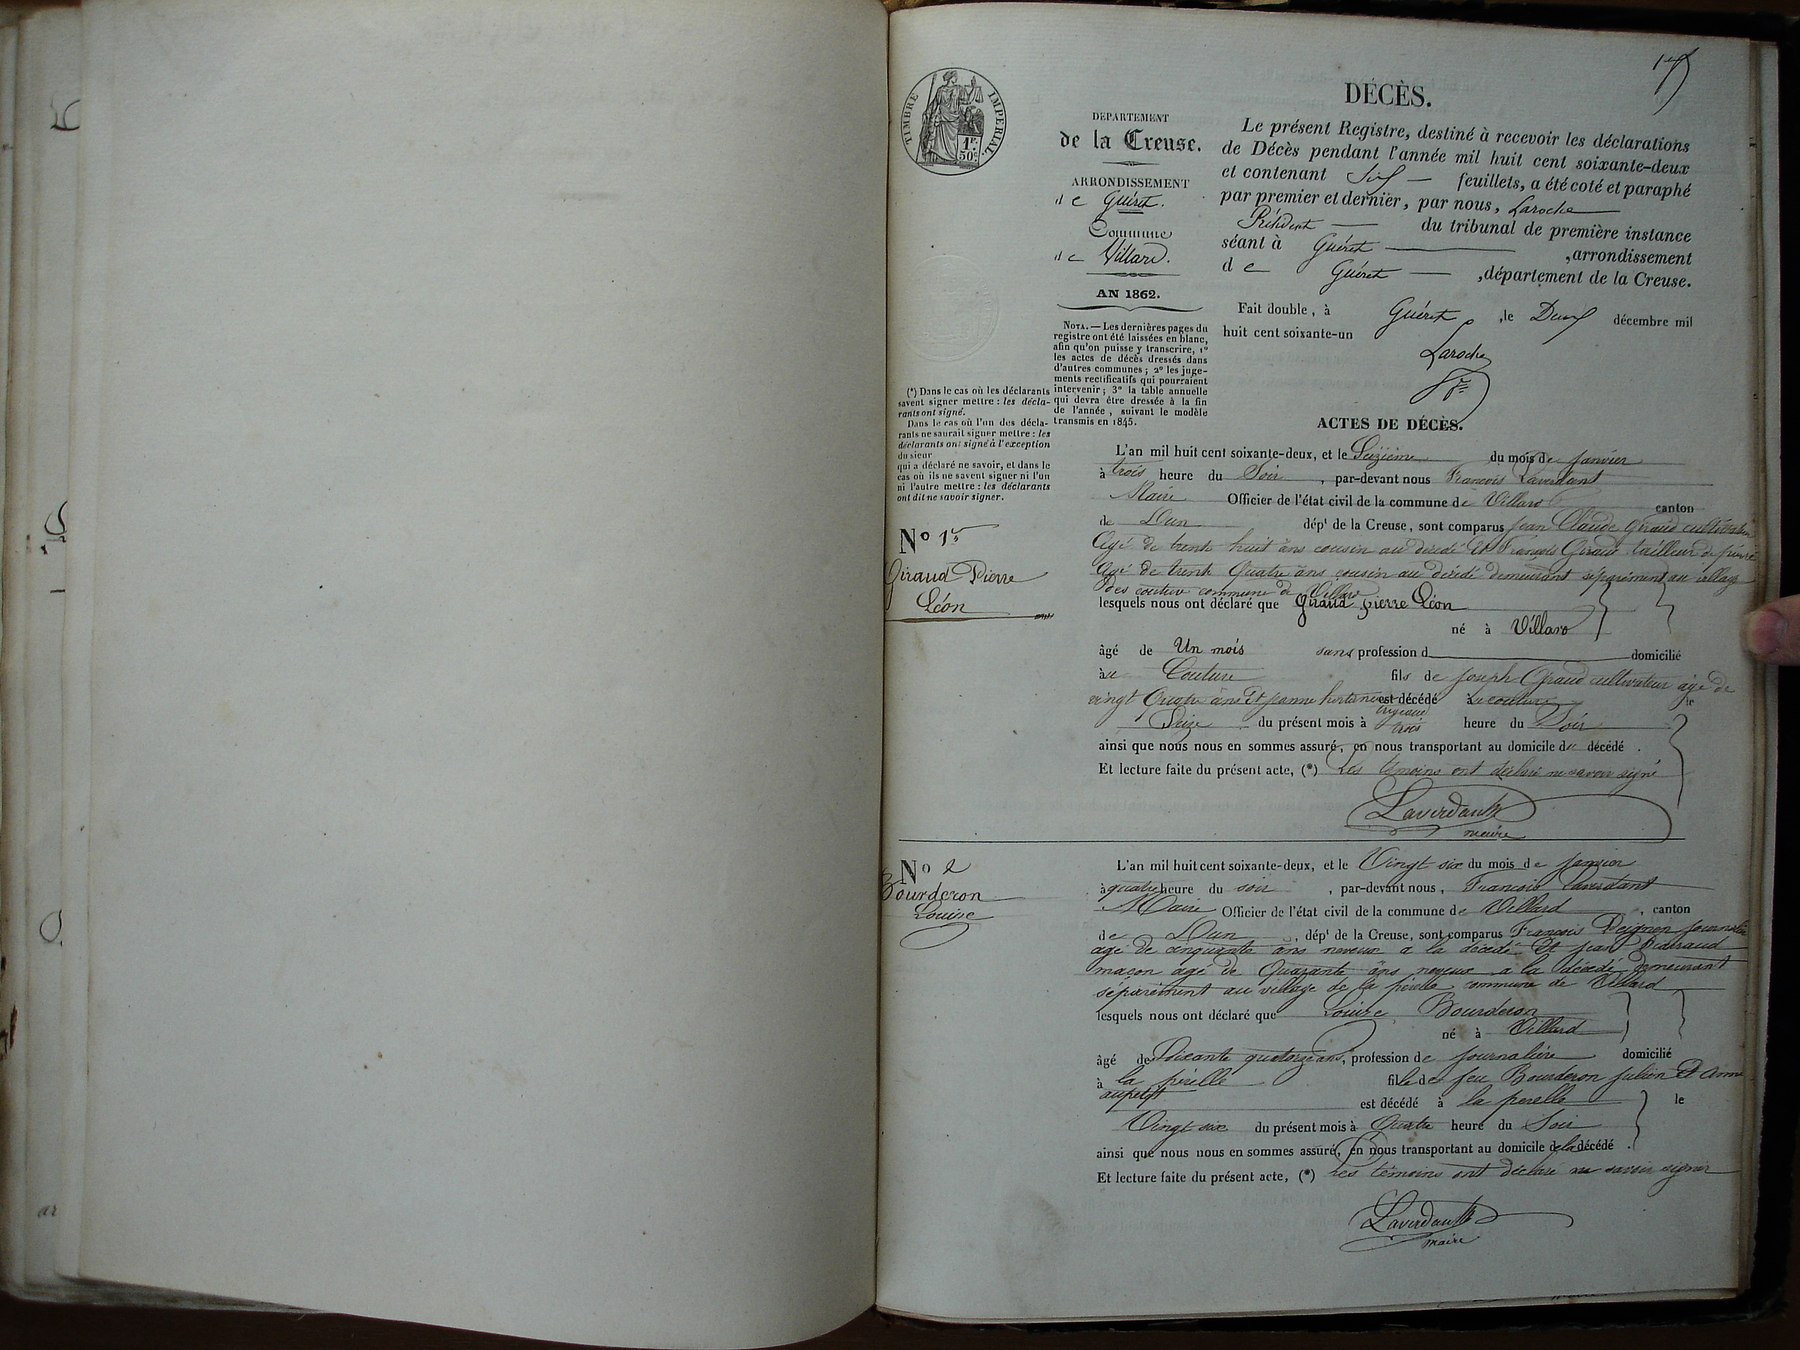 DÉCÈS.
TIMBRE IMPÉRIAL.
1F. 50C.
DÉPARTEMENT
de la Creuse.
ARRONDISSEMENT
de Guéret.
Commune
de Villard.
AN 1862.
NOTA. — Les dernières pages du
registre ont été laissées en blanc,
afin qu'on puisse y transcrire, 1°
les actes de décès dressés dans
d'autres communes ; 2° les juge-
ments rectificatifs qui pourraient
intervenir ; 3° la table annuelle
qui devra être dressée à la fin
de l'année, suivant le modèle
transmis en 1845.
Le présent Registre, destiné à recevoir les déclarations
de Décès pendant l'année mil huit cent soixante-deux
et contenant Six feuillets, a été coté et paraphé
par premier et dernier, par nous, Laroche
Président du tribunal de première instance
séant à Guéret , arrondissement
de Guéret , département de la Creuse.
Fait double, à Guéret , le Deux décembre mil
huit cent soixante-un
Laroche
(*) Dans le cas où les déclarants
savent signer mettre : les décla-
rants ont signé.
Dans le cas où l'un des décla-
rants ne saurait signer mettre : les
déclarants ont signé à l'exception
du sieur
qui a déclaré ne savoir, et dans le
cas où ils ne savent signer ni l'un
ni l'autre mettre : les déclarants
ont dit ne savoir signer.
ACTES DE DÉCÈS.
N° 1er
Giraud Pierre
Léon
L'an mil huit cent soixante-deux, et le Seizième du mois de janvier
à trois heure du Soir , par-devant nous François Laverdant
Maire Officier de l'état civil de la commune de Villard canton
de Dun dépt de la Creuse, sont comparus jean Claude Giraud cultivateur
Agé de trente huit ans cousin au décédé Et François Giraud tailleur de pierre
Agé de trente Quatre ans cousin au décédé demeurant séparément au village
des couture commune de Villard
lesquels nous ont déclaré que Giraud pierre Léon
né à Villard
âgé de Un mois sans profession d domicilié
au Couture fils de joseph Giraud cultivateur agé de
vingt Quatre ans Et jeanne est décédé à la couture le
Seize du présent mois à trois heure du Soir
ainsi que nous nous en sommes assuré, en nous transportant au domicile du décédé .
Et lecture faite du présent acte, (*) Les témoins ont déclaré ne savoir signé
Laverdant
maire
N° 2
Bourderon
Louise
L'an mil huit cent soixante-deux, et le Vingt six du mois de janvier
à quatre heure du soir , par-devant nous, François Laverdant
Maire Officier de l'état civil de la commune de Villard , canton
de Dun , dépt de la Creuse, sont comparus François Peignen journalier
agé de cinquante ans neveux a la décédé Et jean
maçon agé de Quarante ans neveux a la décédé demeurant
séparément au village de la perelle commune de Villard
lesquels nous ont déclaré que Louise Bourderon
né à Villard
âgé de Soixante quatorze ans, profession de journalière domicilié
à la pérelle fille de feu Bourderon julien Et anne
aupetit est décédé à la perelle le
Vingt six du présent mois à Quatre heure du Soir
ainsi que nous nous en sommes assuré, en nous transportant au domicile de la décédé .
Et lecture faite du présent acte, (*) Les témoins ont déclaré ne savoir signer
Laverdant
maire